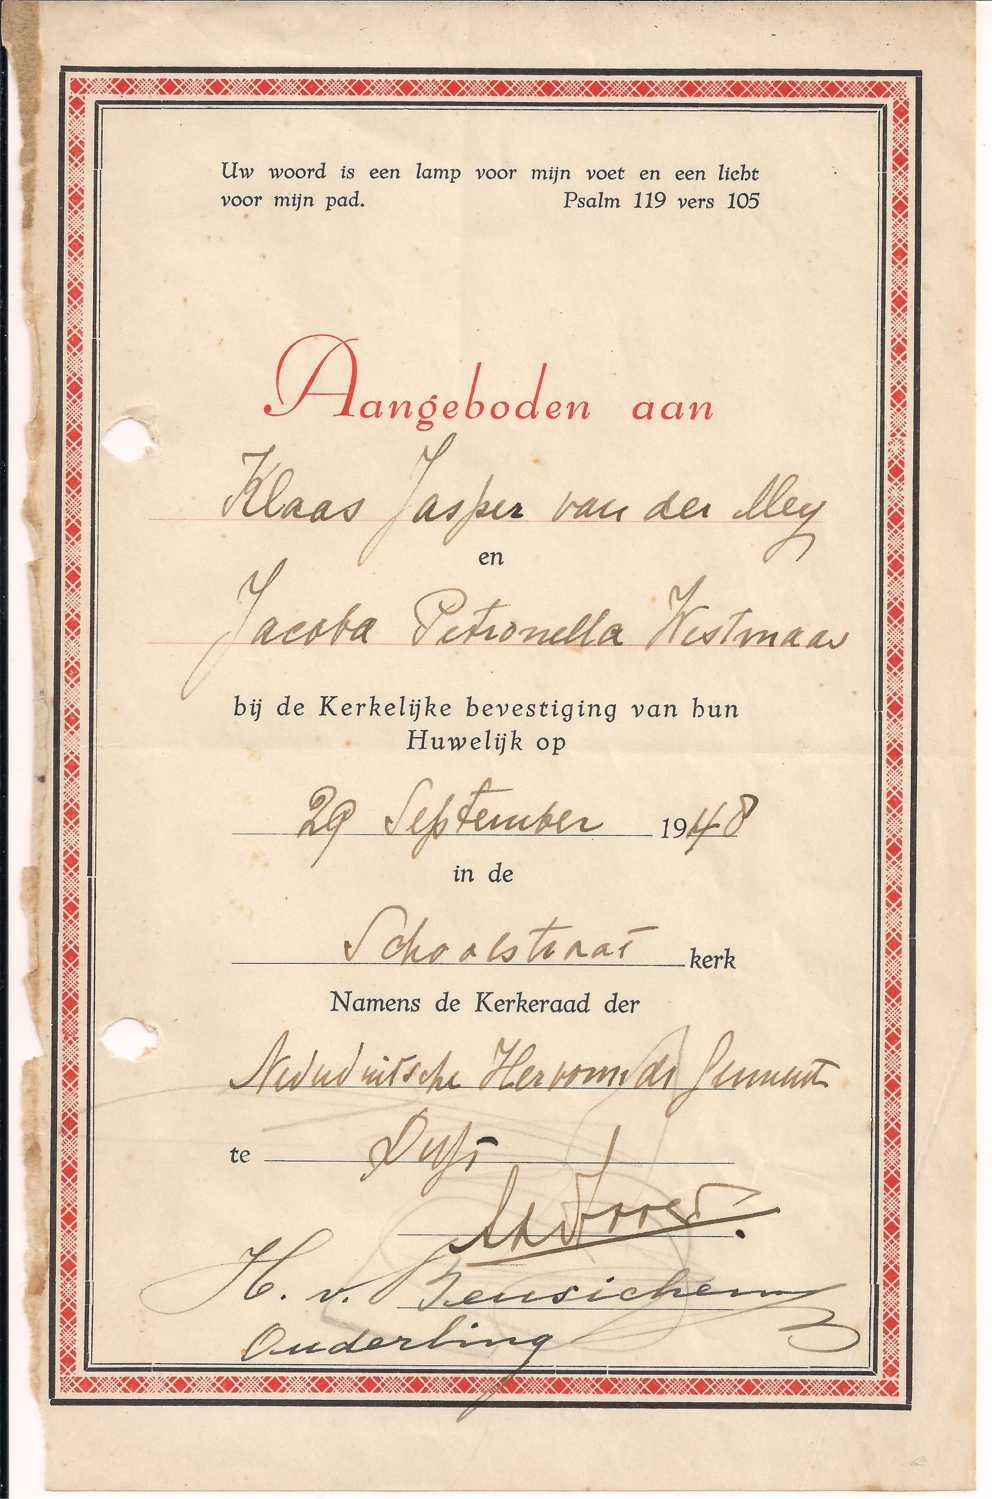 Uw woord is een lamp voor mijn voet en een licht
voor mijn pad. Psalm 119 vers 105
Aangeboden aan
Klaas Jasper van der Meij
en
Jacoba Petronella Westmaas
bij de Kerkelijke bevestiging van hun
Huwelijk op
29 September 1948
in de
Schoolstraat kerk
Namens de Kerkeraad der
Nederduitsche Hervormde Gemeente
te Delft
H. v. Beusichem
Ouderling